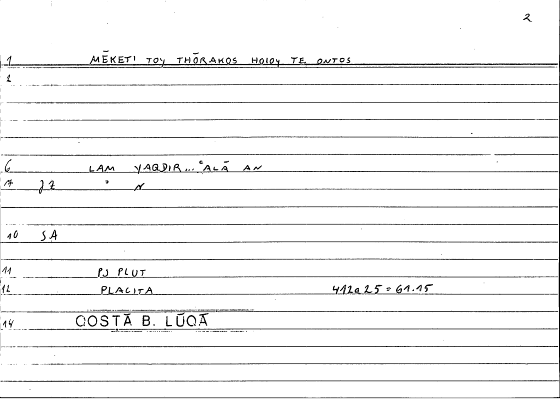 2
1 MĒKETI TOY THŌRAKOS HOIOY TE ONTOS
2
6 LAM YAQDIR... ʿALĀ AN
7 JZ ʿ N
10 SA
11 PJ PLUT
12 PLACITA 412a25 = 61.15
14 QOSṬĀ B. LŪQĀ